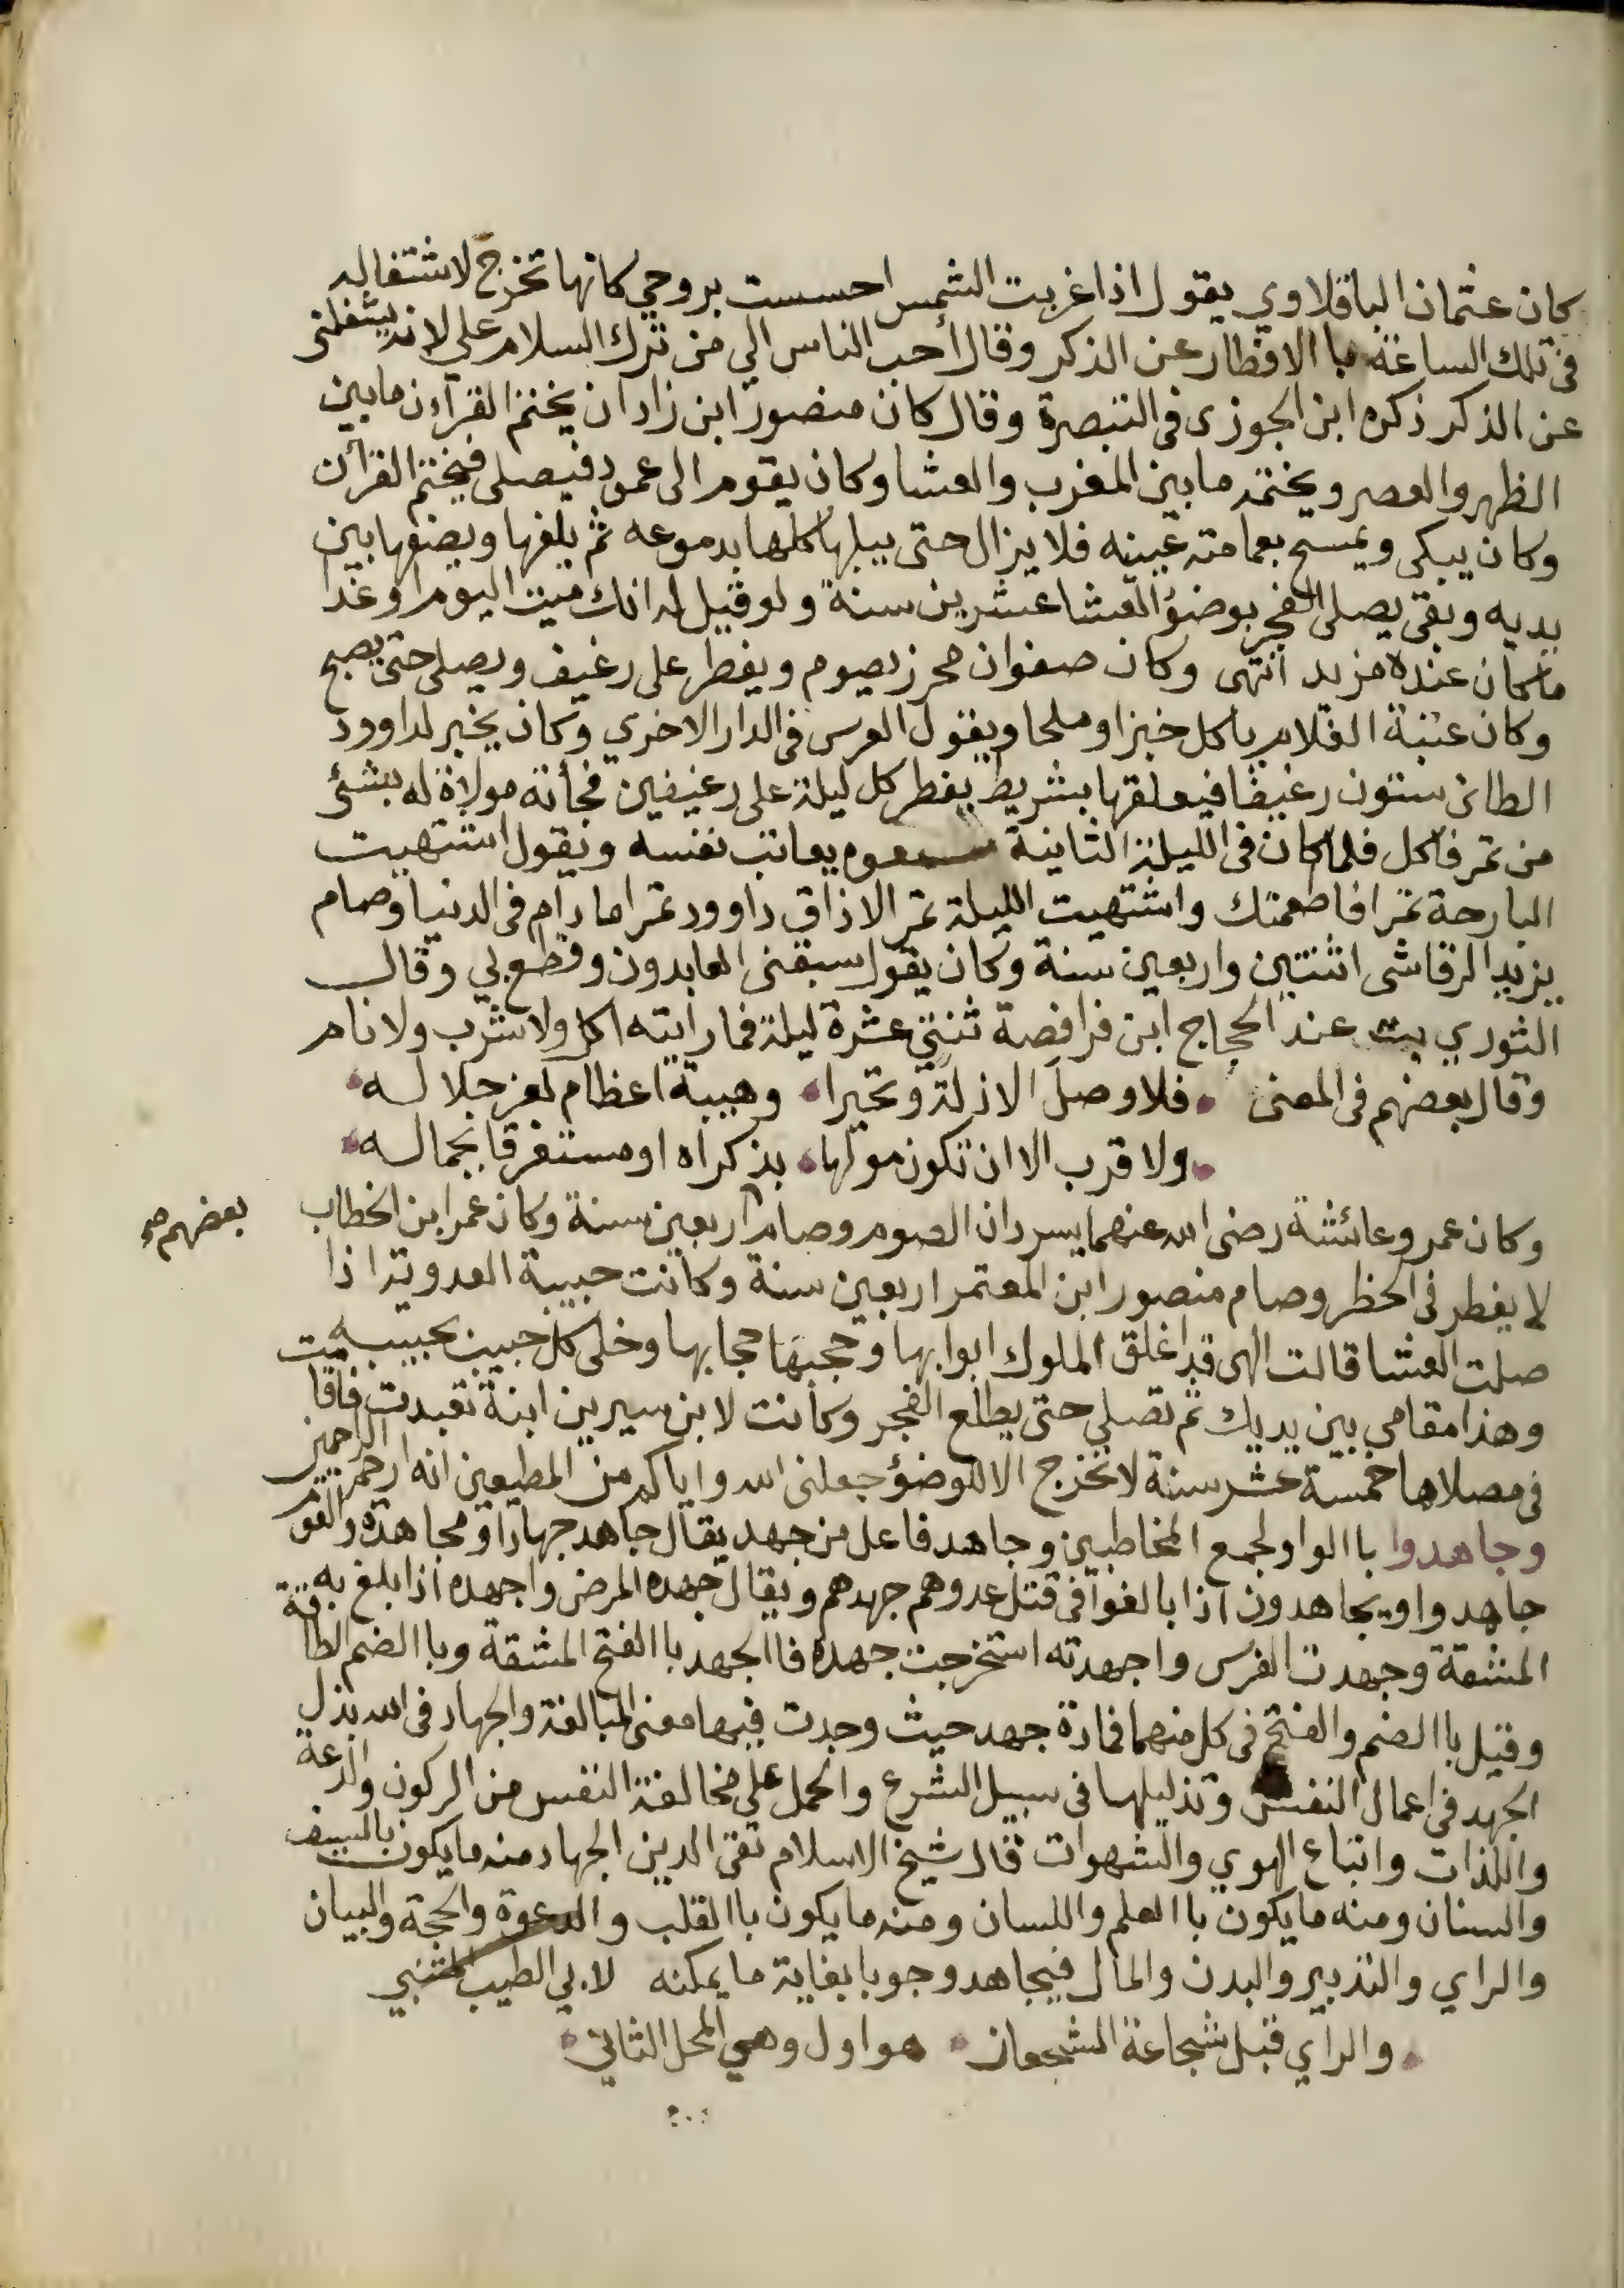 كان عثمان الباقلاوي يقول اذا غربت الشمس احسست بروحي كانها تخرج لاشتغاله
في تلك الساعة با الافطار عن الذكر وقال أحب الناس الي من ترك السلام علي لانه يشغلني
عن الذكر ذكره ابن الجوزي في التبصرة وقال كان منصور ابن زادان يختم القرآن ما بين
الظهر والعصر ويختمه ما بين المغرب والعشا وكان يقوم الى عمود فيصلى فيختم القرآن
وكان يبكى ويمسح بعمامته عينه فلا يزال حتى يبلها كلها بدموعه ثم يلفها ويضعها بين
يديه وبقى يصلى الفجر بوضؤ العشا عشرين سنة ولو قيل له انك ميت اليوم او غدا
ما كان عنده مزيد انتهى وكان صفوان محرز يصوم ويفطر على رغيف ويصلى حتى يصبح
وكان عتبة الغلام ياكل خبزا وملحا ويقول العرس في الدار الاخري وكان يخبز لداوود
الطائ ستون رغيفا فيعلقها بشريط يفطر كل ليلة على رغيفين فجأته مولاة له بشئ
من تمر فاكل فلما كان في الليلة الثانية يعاتب نفسه ويقول اشتهيت
البارحة تمرا فاطعمتك واشتهيت الليلة تمر الا ذاق داوود تمرا ما دام في الدنيا وصام
يزيد الرقاشى اثنتين واربعين سنة وكان يقول سبقنى العابدون وقطع بي وقال
الثوري بت عند الحجاج ابن فرافصة ثنتي عشرة ليلة فما رايته اكل ولا شرب ولا نام
وقال بعضهم في المعنى فلا وصل الا ذلة وتحيرا وهيبة اعظام لعز جلاله
ولا قرب الا ان تكون مولها بذكراه او مستغرقا بجماله
وكان عمر وعائشة رضى الله عنهما يسردان الصوم وصام اربعين سنة وكان عمر ابن الخطاب
بعضهم صح
لا يفطر في الحظر وصام منصور ابن المعتمر اربعين سنة وكانت حبيبة العدوية اذا
صلت العشا قالت الهى قد اغلق الملوك ابوابها وحجبها حجابها وخلى كل حبيب بحبيبه
وهذا مقامي بين يديك ثم تصلي حتى يطلع الفجر وكانت لابن سيرين ابنة تعبدت فاقامت
في مصلاها خمسة عشر سنة لا تخرج الا للوضؤ جعلنى الله واياكم من المطيعين انه ارحم الراحمين
وجاهدوا با الواو لجمع المخاطبين وجاهد فاعل من جهد يقال جاهد جهادا ومجاهدة والقوم
جاهدوا ويجاهدون اذا بالغوا في قتل عدوهم جهدهم ويقال جهده المرض واجهده اذا بلغ به
المشقة وجهدت الفرس واجهدته استخرجت جهده فا الجهد با الفتح المشقة وبا الضم الطاقة
وقيل با الضم والفتح في كل منهما فمادة جهد حيث وجدت فيها معنى المبالغة والجهاد في الله بذل
الجهد في اعمال النفس وتذليلها في سبيل الشرع والحمل على مخالفة النفس من الركون والدعة
واللذات واتباع الهوي والشهوات قال شيخ الاسلام تقى الدين الجهاد منه ما يكون بالسيف
والسنان ومنه ما يكون با العلم واللسان ومنه ما يكون با القلب والدعوة والحجة والبيان
والراي والتدبير والبدن والمال فيجاهد وجوبا بغاية ما يمكنه لابي الطيب المتنبي
والراي قبل شجاعة الشجعان هو اول وهي المحل الثاني